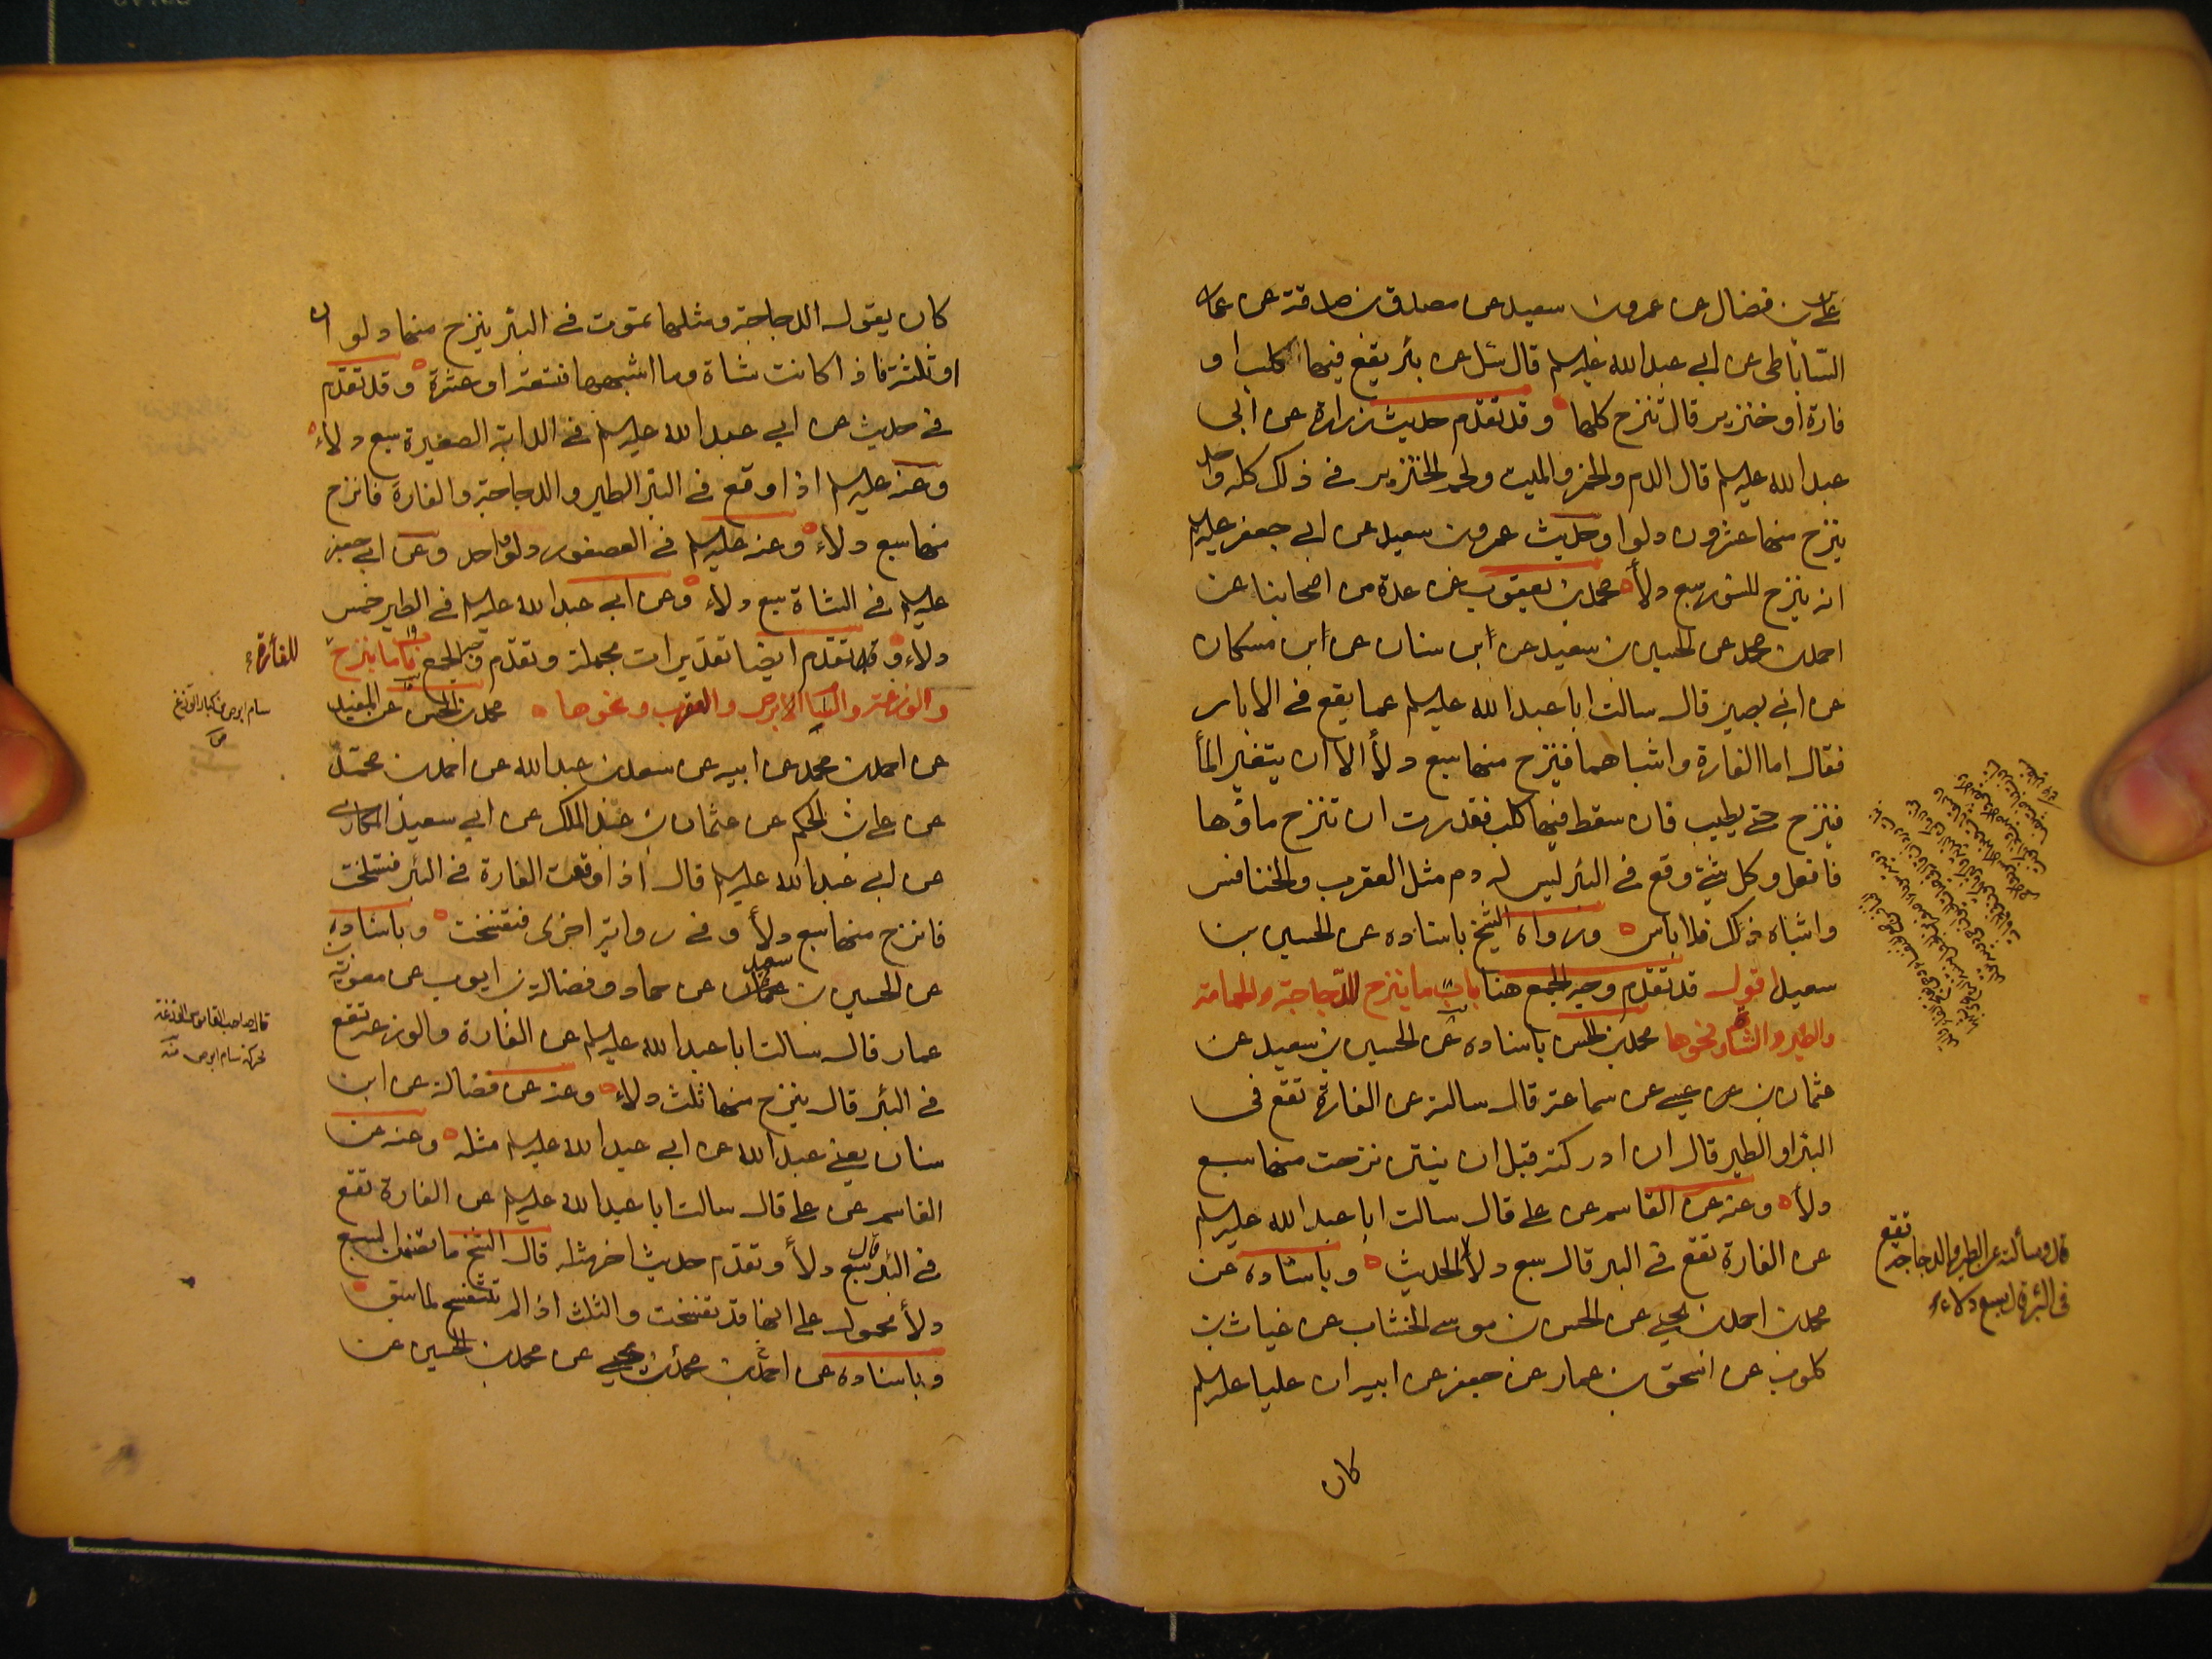 علي بن فضال عن عمرو بن سعيد عن مصدق بن صدقة عن عمار
الساباطي عن ابي عبد الله عليه السلم قال سئل عن بئر يقع فيها كلب او
فارة او خنزير قال تنزح كلها وقد تقدم حديث زرارة عن ابي
عبد الله عليه السلم قال الدم والخمر والميت ولحم الخنزير في ذلك كله واحد
ينزح منها عشرون دلوا وحديث عمرو بن سعيد عن ابي جعفر عليه السلم
انه ينزح للسنور سبع دلاء محمد بن يعقوب عن عدة من اصحابنا عن
احمد بن محمد عن الحسين بن سعيد عن ابن سنان عن ابن مسكان
عن ابي بصير قال سالت ابا عبد الله عليه السلم عما يقع في الابار
فقال اما الفارة واشباهها فينزح منها سبع دلاء الا ان يتغير الماء
فينزح حتى يطيب فان سقط فيها كلب فقدرت ان تنزح ماؤها
فافعل وكل شيء وقع في البئر ليس له دم مثل العقرب والخنافس
واشباه ذلك فلا باس ورواه الشيخ باسناده عن الحسين بن
سعيد اقول قد تقدم وجه الجمع هنا باب ما ينزح للدجاجة والحمامة
والطير والشاة ونحوها محمد بن الحسن باسناده عن الحسين بن سعيد عن
عثمان بن عيسى عن سماعة قال سالته عن الفارة تقع في
البئر او الطير قال ان ادركته قبل ان ينتن نزحت منها سبع
دلاء وعنه عن القاسم عن علي قال سالت ابا عبد الله عليه السلم
عن الفارة تقع في البئر قال سبع دلاء الحديث وباسناده عن
محمد بن احمد بن يحيى عن الحسن بن موسى الخشاب عن غياث بن
كلوب عن اسحق بن عمار عن جعفر عن ابيه ان عليا عليه السلم
كان
قال وسألته عن الطير والدجاجة تقع
في البئر قال سبع دلاء
كان يقول الدجاجة ومثلها تموت في البئر ينزح منها دلوان
او ثلثة فاذا كانت شاة وما اشبهها فتسعة او عشرة وقد تقدم
في حديث عن ابي عبد الله عليه السلم في الدابة الصغيرة سبع دلاء
وعنه عليه السلم اذا وقع في البئر الطير والدجاجة والفارة فانزح
منها سبع دلاء وعنه عليه السلم في العصفور دلو واحد وعن ابي جعفر
عليه السلم في الشاة سبع دلاء وعن ابي عبد الله عليه السلم في الطير خمس
دلاء وقد تقدم ايضا تقديرات مجملة وتقدم وجه الجمع باب ما ينزح
للفارة
والوزغة والسام الابرص والعقرب ونحوها محمد بن الحسن عن المفيد
عن احمد بن محمد عن ابيه عن سعد بن عبد الله عن احمد بن محمد
عن علي بن الحكم عن عثمان بن عبد الملك عن ابي سعيد المكاري
عن ابي عبد الله عليه السلم قال اذا وقعت الفارة في البئر فتسلخت
فانزح منها سبع دلاء وفي رواية اخرى فتفسخت وباسناده
عن الحسين بن سعيد عن حماد وفضالة بن ايوب عن معوية بن
عمار قال سالت ابا عبد الله عليه السلم عن الفارة والوزغة تقع
في البئر قال ينزح منها ثلث دلاء وعنه عن فضالة عن ابن
سنان يعني عبد الله عن ابي عبد الله عليه السلم مثله وعنه عن
القاسم عن علي قال سالت ابا عبد الله عليه السلم عن الفارة تقع
في البئر قال سبع دلاء وتقدم حديث اخر مثله قال الشيخ ما تضمن السبع
دلاء محمول على انها قد تفسخت والثلث اذا لم تتفسخ لما سبق
وباسناده عن احمد بن محمد بن يحيى عن محمد بن الحسين عن
سام ابرص من كبار الوزغ
ص
قال صاحب القاموس الوزغة
محركة سام ابرص منه